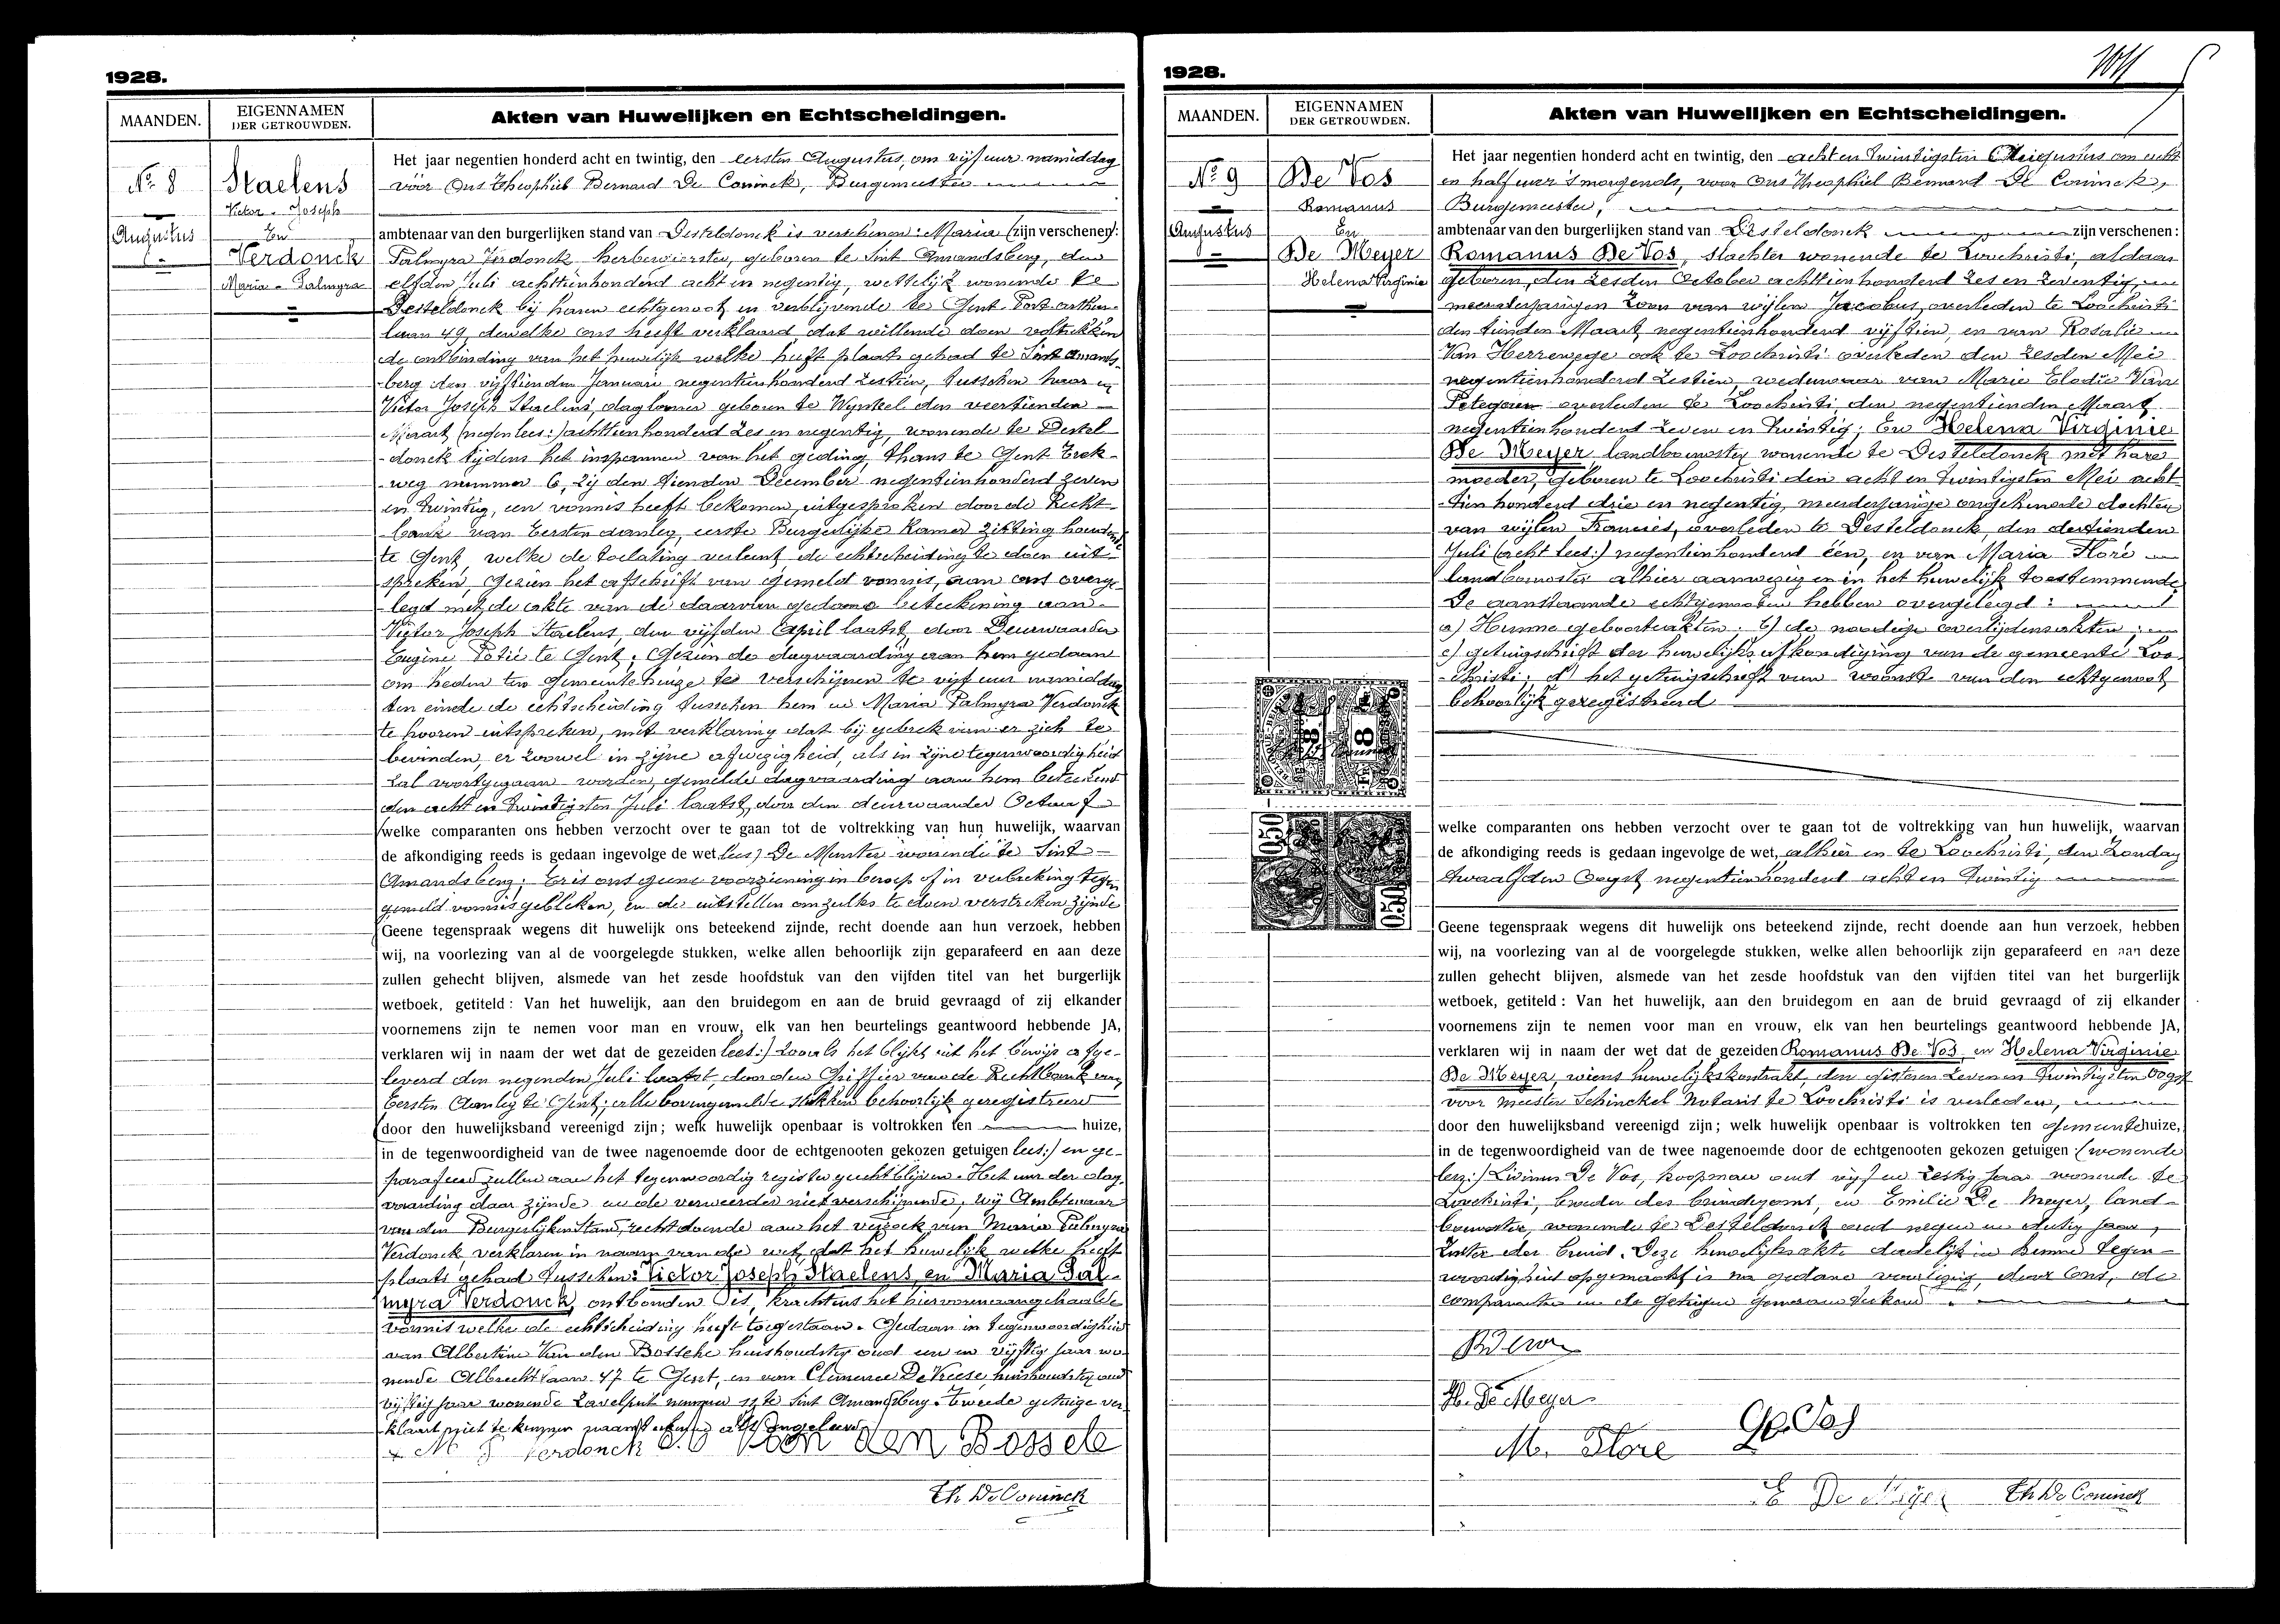 1928.
MAANDEN.
EIGENNAMEN
DER GETROUWDEN.
Akten van Huwelijken en Echtscheidingen.
No. 8
Augustus
1
Staelens
Victor - Joseph
En
Verdonck
Maria - Palmyra
Het jaar negentien honderd acht en twintig, den eersten Augustus, om vijf uur namiddag
vóór Ons Theophiel Bernard De Coninck, Burgemeester
ambtenaar van den burgerlijken stand van Desteldonck is verschenen: Maria (zijn verschenen):
Palmyra Verdonck herbergierster, geboren te Sint Amandsberg, den
elfden Juli achttienhonderd acht en negentig, wettelijk wonende te
Desteldonck bij haren echtgenoot en verblijvende te Gent Port-arthur
laan 49, dewelke ons heeft verklaard dat willende doen voltrekken
de ontbinding van het huwelijk welke heeft plaats gehad te Sint Amands-
berg den vijftienden Januari negentienhonderd zestien, tusschen haar en
Victor Joseph Staelens, daglooner geboren te Wynkel den veertienden
Maart (negen lees:) achttienhonderd zes en negentig, wonende te Destel-
donck tijdens het inspannen van het geding, thans te Gent Eek-
weg nummer 6, zij den tienden December negentienhonderd zeven
en twintig, een vonnis heeft bekomen, uitgesproken door de Recht-
bank van Eersten aanleg, eerste Burgerlijke Kamer zitting houdend
te Gent, welke de toelating verleent de echtscheiding te doen uit-
spreken, Gezien het afschrift van gemeld vonnis, aan ons overge-
legd met de akte van de daarvan gedane beteekening aan
Victor Joseph Staelens, den vijfden April laatst, door Deurwaarder
Eugène Potié te Gent; Gezien de dagvaarding aan hem gedaan
om heden ten Gemeentehuize te verschijnen te vijf uur namiddag
ten einde de echtscheiding tusschen hem en Maria Palmyra Verdonck
te hooren uitspreken, met verklaring dat bij gebrek van er zich te
bevinden, er zoowel in zijne afwezigheid, als in zijne tegenwoordigheid
zal voortgegaan worden, gemelde dagvaarding aan hem beteekend
den acht en twintigsten Juli laatst, door den deurwaarder Octaaf
(welke comparanten ons hebben verzocht over te gaan tot de voltrekking van hun huwelijk, waarvan
de afkondiging reeds is gedaan ingevolge de wet, lees) De Munter wonende te Sint
Amandsberg; Er is ons geene voorziening in beroep of in verbreking tegen
gemeld vonnis gebleken, en de uitstellen om zulks te doen verstreken zijnde
(Geene tegenspraak wegens dit huwelijk ons beteekend zijnde, recht doende aan hun verzoek, hebben
wij, na voorlezing van al de voorgelegde stukken, welke allen behoorlijk zijn geparafeerd en aan deze
zullen gehecht blijven, alsmede van het zesde hoofdstuk van den vijfden titel van het burgerlijk
wetboek, getiteld: Van het huwelijk, aan den bruidegom en aan de bruid gevraagd of zij elkander
voornemens zijn te nemen voor man en vrouw, elk van hen beurtelings geantwoord hebbende JA,
verklaren wij in naam der wet dat de gezeiden lees:) zooals het blijkt uit het bewijs afge-
leverd den negenden Juli laatst, door den Griffier van de Rechtbank van
Eersten Aanleg te Gent; alle bovengemelde stukken behoorlijk geregistreerd
(door den huwelijksband vereenigd zijn; welk huwelijk openbaar is voltrokken ten huize,
in de tegenwoordigheid van de twee nagenoemde door de echtgenooten gekozen getuigen lees:) en ge-
parafeerd zullen aan het tegenwoordig register gehecht blijven. Het uur der dag
vaarding daar zijnde en de verweerder niet verschijnende, wij Ambtenaar
van den Burgerlijken Stand, recht doende aan het verzoek van Maria Palmyra
Verdonck, verklaren in naam van de wet, dat het huwelijk welke heeft
plaats gehad tusschen: Victor Joseph Staelens, en Maria Pal-
myra Verdonck, ontbonden is, krachtens het hiervoren aangehaalde
vonnis welke de echtscheiding heeft toegestaan. Gedaan in tegenwoordigheid
van Albertine Van den Bossche huishoudster oud een en vijftig jaar wo-
nende Albrechtlaan 47 te Gent, en van Clemence De Vreese, huishoudster oud
vijftig jaar wonende nummer 11 te Sint Amandsberg. Tweede getuige ver-
klaart niet te kunnen naamteekenen als ongeleerd
M P Verdonck Van den Bossche
Th De Coninck
1928.
MAANDEN.
EIGENNAMEN
DER GETROUWDEN.
Akten van Huwelijken en Echtscheidingen.
No. 9
Augustus
De Vos
Romanus
En
De Meyer
Helena Virginie
Het jaar negentien honderd acht en twintig, den acht en twintigsten Augustus om acht
en half uur 's morgends, voor Ons Theophiel Bernard De Coninck,
Burgemeester,
ambtenaar van den burgerlijken stand van Desteldonck zijn verschenen:
Romanus De Vos, slachter wonende te Loochristi, aldaar
geboren, den zesden October achttienhonderd zes en zeventig,
meerderjarigen zoon van wijlen Jacobus, overleden te Loochristi
den tienden Maart negentienhonderd vijftien, en van Rosalie
Van Herrewege ook te Loochristi overleden den zesden Mei
negentienhonderd zestien, weduwaar van Marie Elodie Van
Peteghem overleden te Loochristi den negentienden Maart
negentienhonderd zeven en twintig; En Helena Virginie
De Meyer, landbouwster wonende te Desteldonck met hare
moeder, geboren te Loochristi den acht en twintigsten Mei acht
tien honderd drie en negentig, meerderjarige ongehuwde dochter
van wijlen Francies, overleden te Desteldonck, den dertienden
Juli (acht lees:) negentienhonderd één, en van Maria Floré
landbouwster alhier aanwezig en in het huwelijk toestemmende
De aanstaande echtgenooten hebben overgelegd:
a) Hunne geboorteakten. b) de noodige overlijdensakten;
c) getuigschrift der huwelijksafkondiging van de gemeente Loo-
christi; d) het getuigschrift van woonst van den echtgenoot,
behoorlijk geregistreerd
8
8
FR
050
050
welke comparanten ons hebben verzocht over te gaan tot de voltrekking van hun huwelijk, waarvan
de afkondiging reeds is gedaan ingevolge de wet, alhier en te Loochristi, den Zondag
twaalfden Oogst negentienhonderd acht en twintig
Geene tegenspraak wegens dit huwelijk ons beteekend zijnde, recht doende aan hun verzoek, hebben
wij, na voorlezing van al de voorgelegde stukken, welke allen behoorlijk zijn geparafeerd en aan deze
zullen gehecht blijven, alsmede van het zesde hoofdstuk van den vijfden titel van het burgerlijk
wetboek, getiteld: Van het huwelijk, aan den bruidegom en aan de bruid gevraagd of zij elkander
voornemens zijn te nemen voor man en vrouw, elk van hen beurtelings geantwoord hebbende JA,
verklaren wij in naam der wet dat de gezeiden Romanus De Vos en Helena Virginie
De Meyer, wiens huwelijkskontrakt, den gisteren zeven en twintigsten Oogst
voor meester Schinckel Notaris te Loochristi is verleden,
door den huwelijksband vereenigd zijn; welk huwelijk openbaar is voltrokken ten Gemeentehuize,
in de tegenwoordigheid van de twee nagenoemde door de echtgenooten gekozen getuigen: (wonende
lees:) Livinus De Vos, koopman oud vijf en zestig jaar wonende te
Loochristi, broeder des bruidegoms, en Emilie De Meyer, land-
bouwster, wonende te Desteldonck oud negen en dertig jaar,
Zuster der bruid. Deze huwelijksakte dadelijk in hunne tegen-
woordigheid opgemaakt is na gedane voorlezing, door Ons, de
comparanten en de getuigen genaamteekend.
H. De Meyer
M. Floré
E De Meyer
Th De Coninck